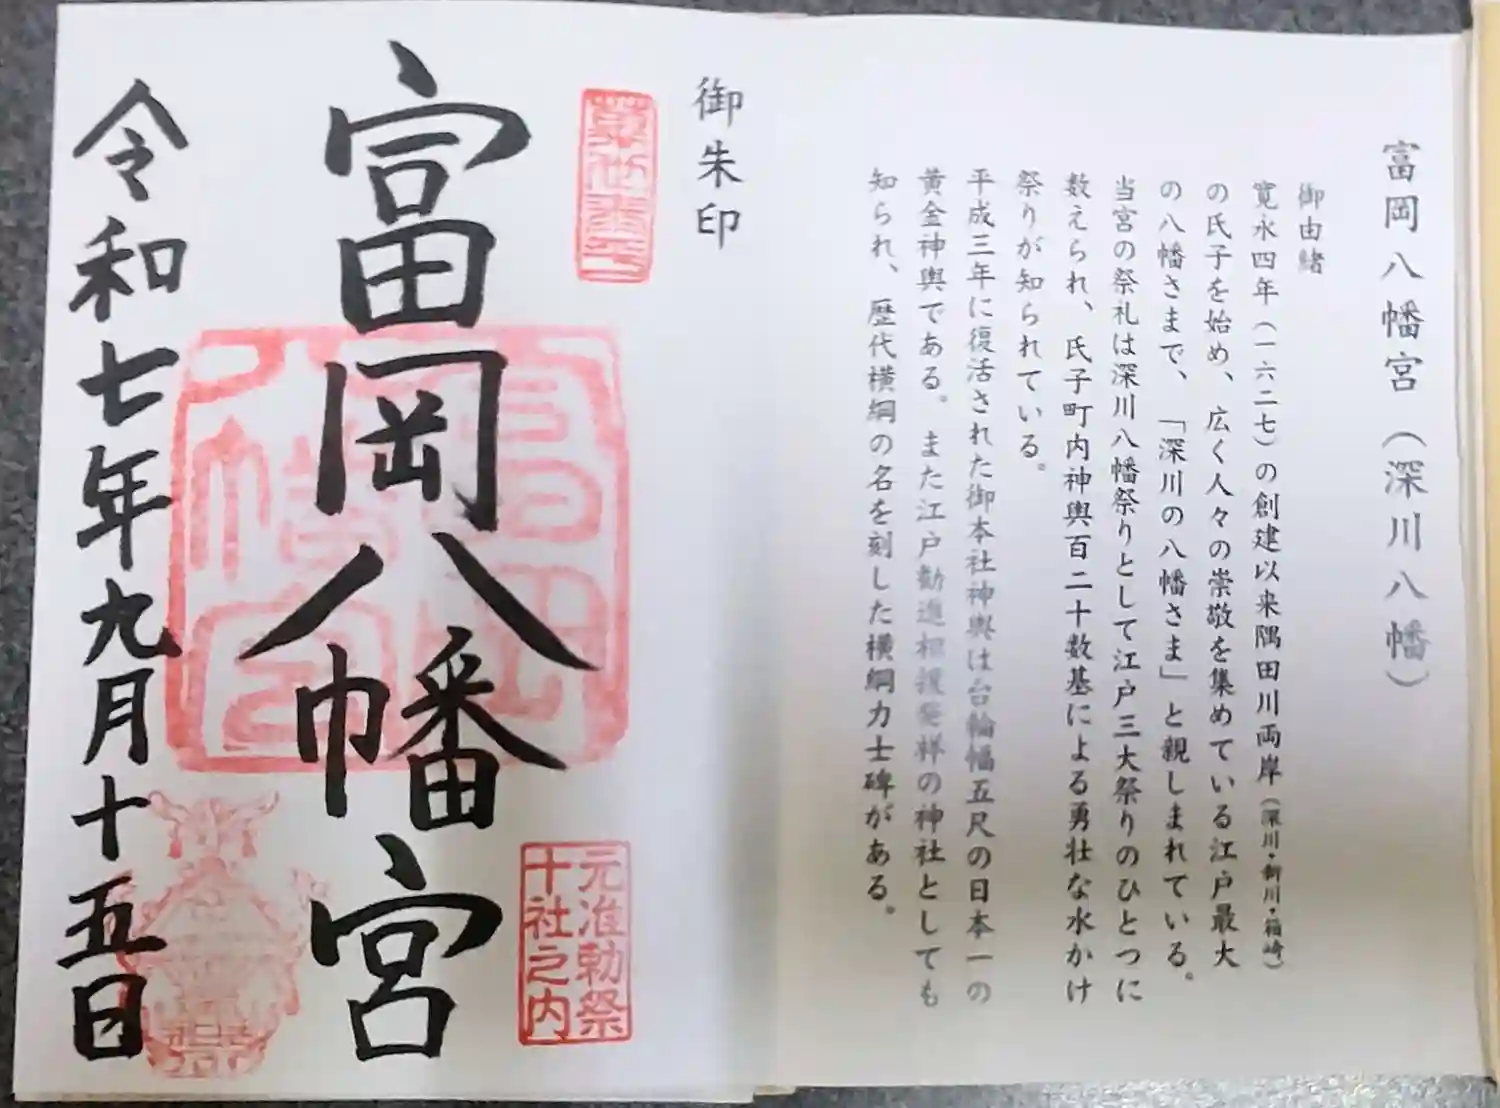 富岡八幡宮（深川八幡）
御由緒
寛永四年（一六二七）の創建以来隅田川両岸（深川・新川・箱崎）
の氏子を始め、広く人々の崇敬を集めている江戸最大
の八幡さまで、「深川の八幡さま」と親しまれている。
当宮の祭礼は深川八幡祭りとして江戸三大祭りのひとつに
数えられ、氏子町内神輿百二十数基による勇壮な水かけ
祭りが知られている。
平成三年に復活された御本社神輿は台輪幅五尺の日本一の
黄金神輿である。また江戸勧進相撲発祥の神社としても
知られ、歴代横綱の名を刻した横綱力士碑がある。
御朱印
富岡八幡宮
元准勅祭
十社之内
令和七年九月十五日